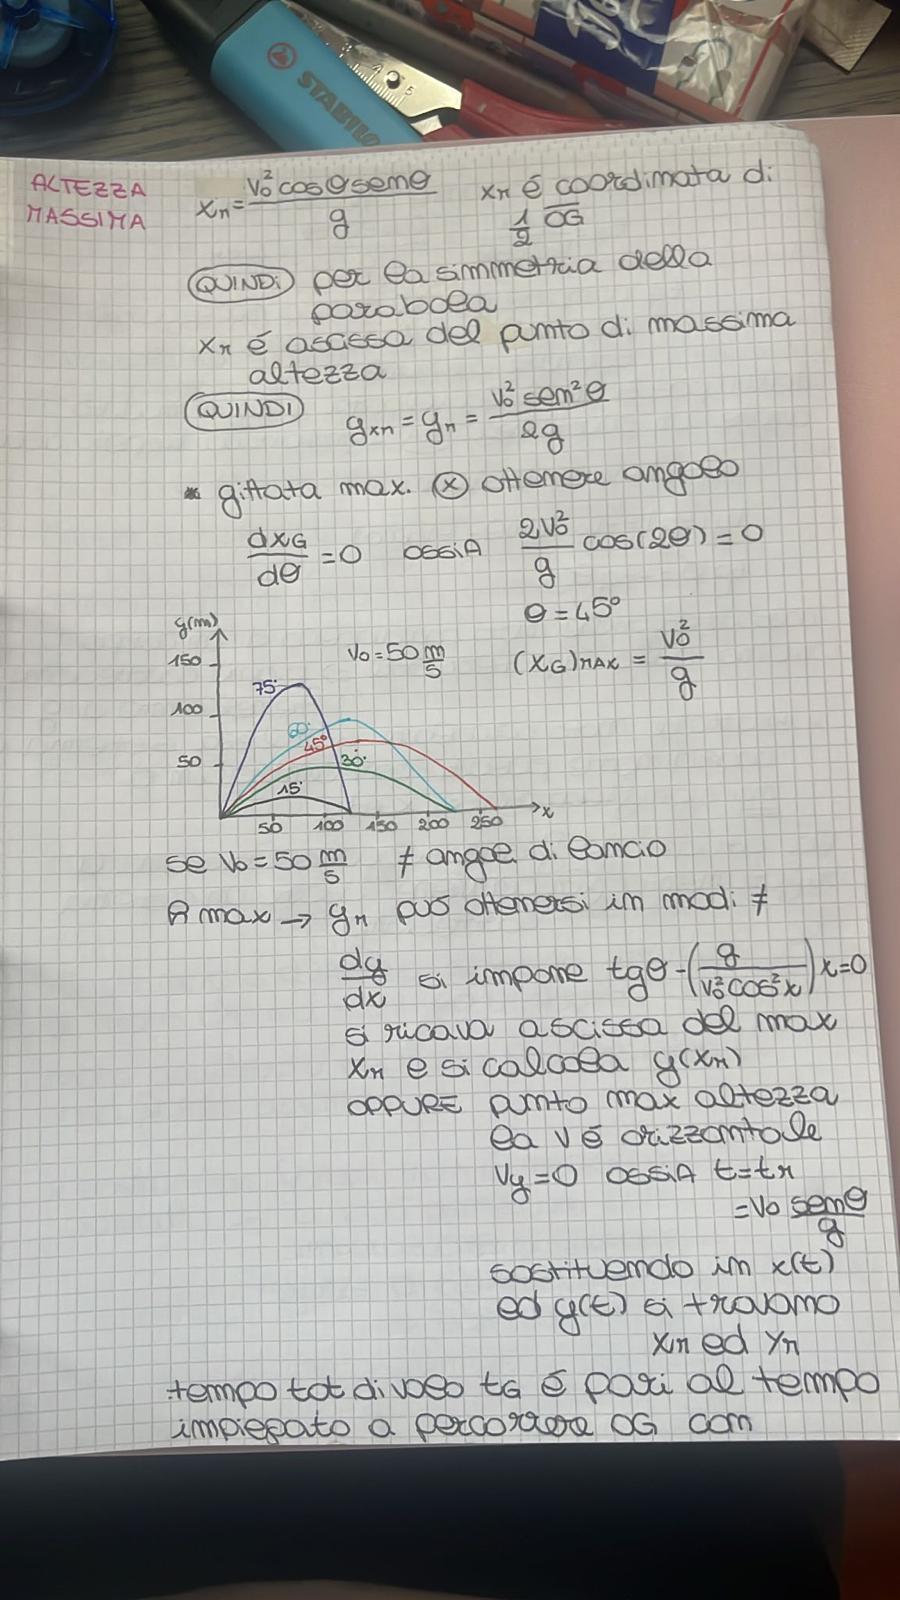 STABILO
ALTEZZA
MASSIMA
xₘ = v₀² cosθ senθ / g
xₘ é coordinata di
1/2 OG
QUINDI per la simmetria della
parabola
xₘ é ascissa del punto di massima
altezza
QUINDI
yₓₘ = yₘ = v₀² sen²θ / 2g
* gittata max. ⓧ ottenere angolo
dx_G/dθ = 0 OSSIA 2v₀²/g cos(2θ) = 0
θ = 45°
y(m)
150
100
50
v₀ = 50 m/s
(x_G)ₘₐₓ = v₀²/g
75°
60°
45°
30°
15°
50 100 150 200 250 x
se v₀ = 50 m/s ≠ angol. di lancio
h max → yₘ può ottenersi in modi ≠
dy/dx si impone tgθ - (g / v₀² cos²x) x = 0
si ricava ascissa del max
xₘ e si calcola y(xₘ)
OPPURE punto max altezza
la v é orizzontale
vy = 0 OSSIA t = tₘ
= v₀ senθ/g
sostituendo in x(t)
ed y(t) si trovano
xₘ ed yₘ
tempo tot di volo t_G é pari al tempo
impiegato a percorrere OG con